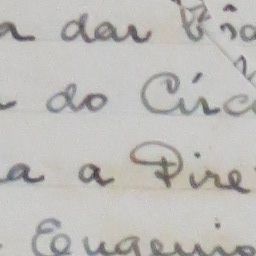 a dar
do Circ
a a Dire
Eugenio